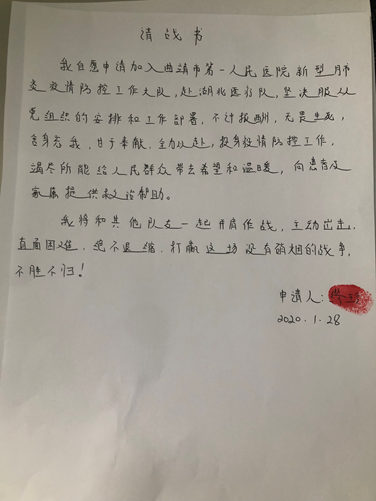 请战书
我自愿申请加入曲靖市第一人民医院新型肺
炎疫情防控工作大队,赴湖北医疗队,坚决服从
党组织的安排和工作部署,不计报酬,无畏生死,
舍身忘我,甘于奉献,全力以赴,投身疫情防控工作,
竭尽所能给人民群众带去希望和温暖,向患者及
家属提供救治帮助。
我将和其他队友一起并肩作战,主动出击,
直面困难,绝不退缩,打赢这场没有硝烟的战争,
不胜不归!
申请人:
2020.1.28